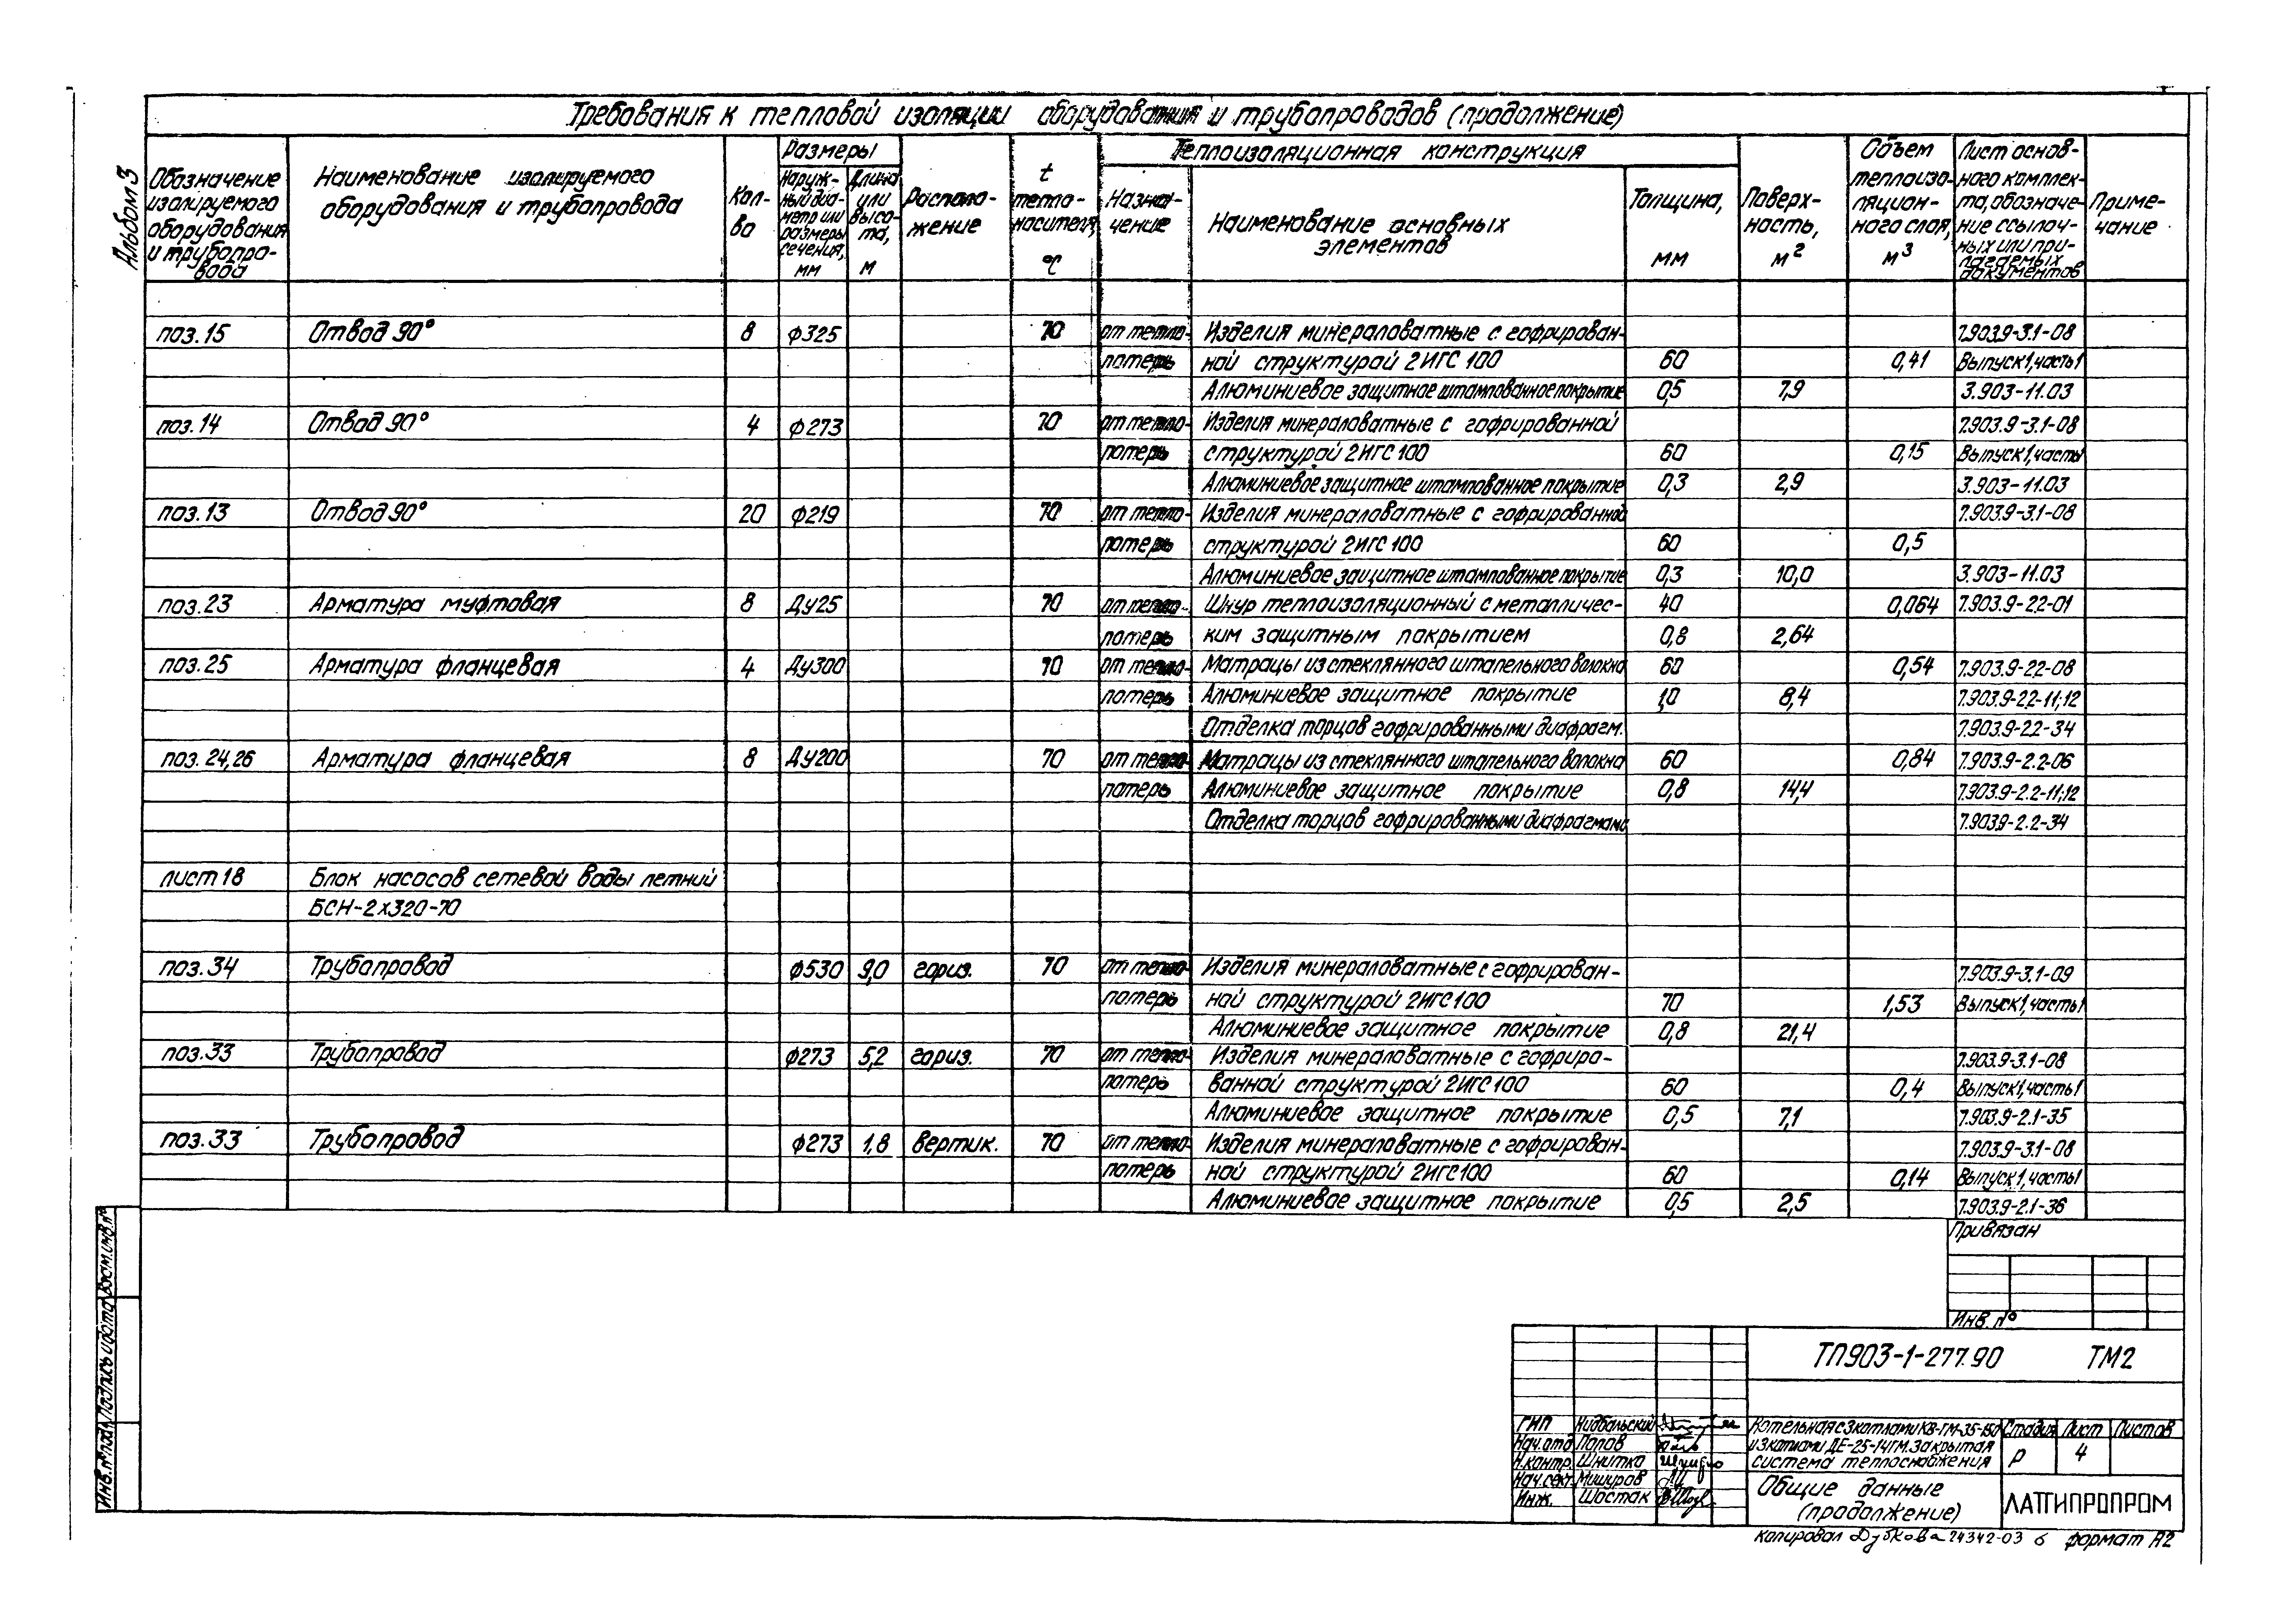 Альбом 3
Требования к тепловой изоляции оборудования и трубопроводов (продолжение)
Обозначение изолируемого оборудования и трубопро-вода
Наименование изолируемого оборудования и трубопровода
Кол-во
Размеры
Наруж-ный диа-метр или размеры сечения, мм
Длина или высо-та, м
Располо-жение
t тепло-носителя, °С
Теплоизоляционная конструкция
Назна-чение
Наименование основных элементов
Толщина, мм
Поверх-ность, м²
Объем теплоизо-ляцион-ного слоя, м³
Лист основ-ного комплек-та, обозначе-ние ссылоч-ных или при-лагаемых документов
Приме-чание
поз.15 Отвод 90° 8 ф325 70 от тепло- Изделия минераловатные с гофрирован- 7.903.9-3.1-08
потерь ной структурой 2ИГС 100 60 0,41 Выпуск 1, часть 1
Алюминиевое защитное штампованное покрытие 0,5 7,9 3.903-11.03
поз.14 Отвод 90° 4 ф273 70 от тепло- Изделия минераловатные с гофрированной 7.903.9-3.1-08
потерь структурой 2ИГС 100 60 0,15 Выпуск 1, часть 1
Алюминиевое защитное штампованное покрытие 0,3 2,9 3.903-11.03
поз.13 Отвод 90° 20 ф219 70 от тепло- Изделия минераловатные с гофрированной 7.903.9-3.1-08
потерь структурой 2ИГС 100 60 0,5
Алюминиевое защитное штампованное покрытие 0,3 10,0 3.903-11.03
поз.23 Арматура муфтовая 8 Ду25 70 от тепло- Шнур теплоизоляционный с металличес- 40 0,064 7.903.9-2.2-01
потерь ким защитным покрытием 0,8 2,64
поз.25 Арматура фланцевая 4 Ду300 70 от тепло- Матрацы из стеклянного штапельного волокна 60 0,54 7.903.9-2.2-08
потерь Алюминиевое защитное покрытие 1,0 8,4 7.903.9-2.2-11;12
Отделка торцов гофрированными диафрагм. 7.903.9-2.2-34
поз.24,26 Арматура фланцевая 8 Ду200 70 от тепло- Матрацы из стеклянного штапельного волокна 60 0,84 7.903.9-2.2-06
потерь Алюминиевое защитное покрытие 0,8 14,4 7.903.9-2.2-11;12
Отделка торцов гофрированными диафрагмами 7.903.9-2.2-34
лист 18 Блок насосов сетевой воды летний
БСН-2х320-70
поз.34 Трубопровод ф530 9,0 гориз. 70 от тепло- Изделия минераловатные с гофрирован- 7.903.9-3.1-09
потерь ной структурой 2ИГС 100 70 1,53 Выпуск 1, часть 1
Алюминиевое защитное покрытие 0,8 21,4
поз.33 Трубопровод ф273 5,2 гориз. 70 от тепло- Изделия минераловатные с гофриро- 7.903.9-3.1-08
потерь ванной структурой 2ИГС 100 60 0,4 Выпуск 1, часть 1
Алюминиевое защитное покрытие 0,5 7,1 7.903.9-2.1-35
поз.33 Трубопровод ф273 1,8 вертик. 70 от тепло- Изделия минераловатные с гофрирован- 7.903.9-3.1-08
потерь ной структурой 2ИГС 100 60 0,14 Выпуск 1, часть 1
Алюминиевое защитное покрытие 0,5 2,5 7.903.9-2.1-36
Привязан
Инв. №
ТП903-1-277.90 ТМ2
ГИП Нидбальский
Нач.отд Попов
Н.контр. Шнитко
Нач.сект. Мишуров
Инж. Шостак
Котельная с 3 котлами КВ-ГМ-35-150
и 3 котлами ДЕ-25-14ГМ. Закрытая
система теплоснабжения
Стадия Лист Листов
Р 4
Общие данные
(продолжение)
ЛАТГИПРОПРОМ
Копировал Дубкова 24342-03 6 формат А2
Инв.№ подл. Подпись и дата Взам.инв.№